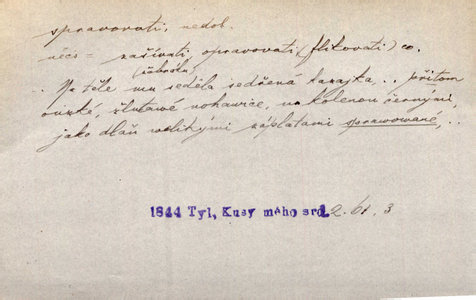 spravovati, nedok.
něco = zašívati, opravovati, (flikovati) co.
(žebráku)
.. Na těle mu seděla sedřená kazajka... přitom
ouzké, žlutawé nohawice, na kolenou černými,
jako dlaň welikými záplatami sprawowané,..
1844 Tyl, Kusy mého srd. 2. 61. 3